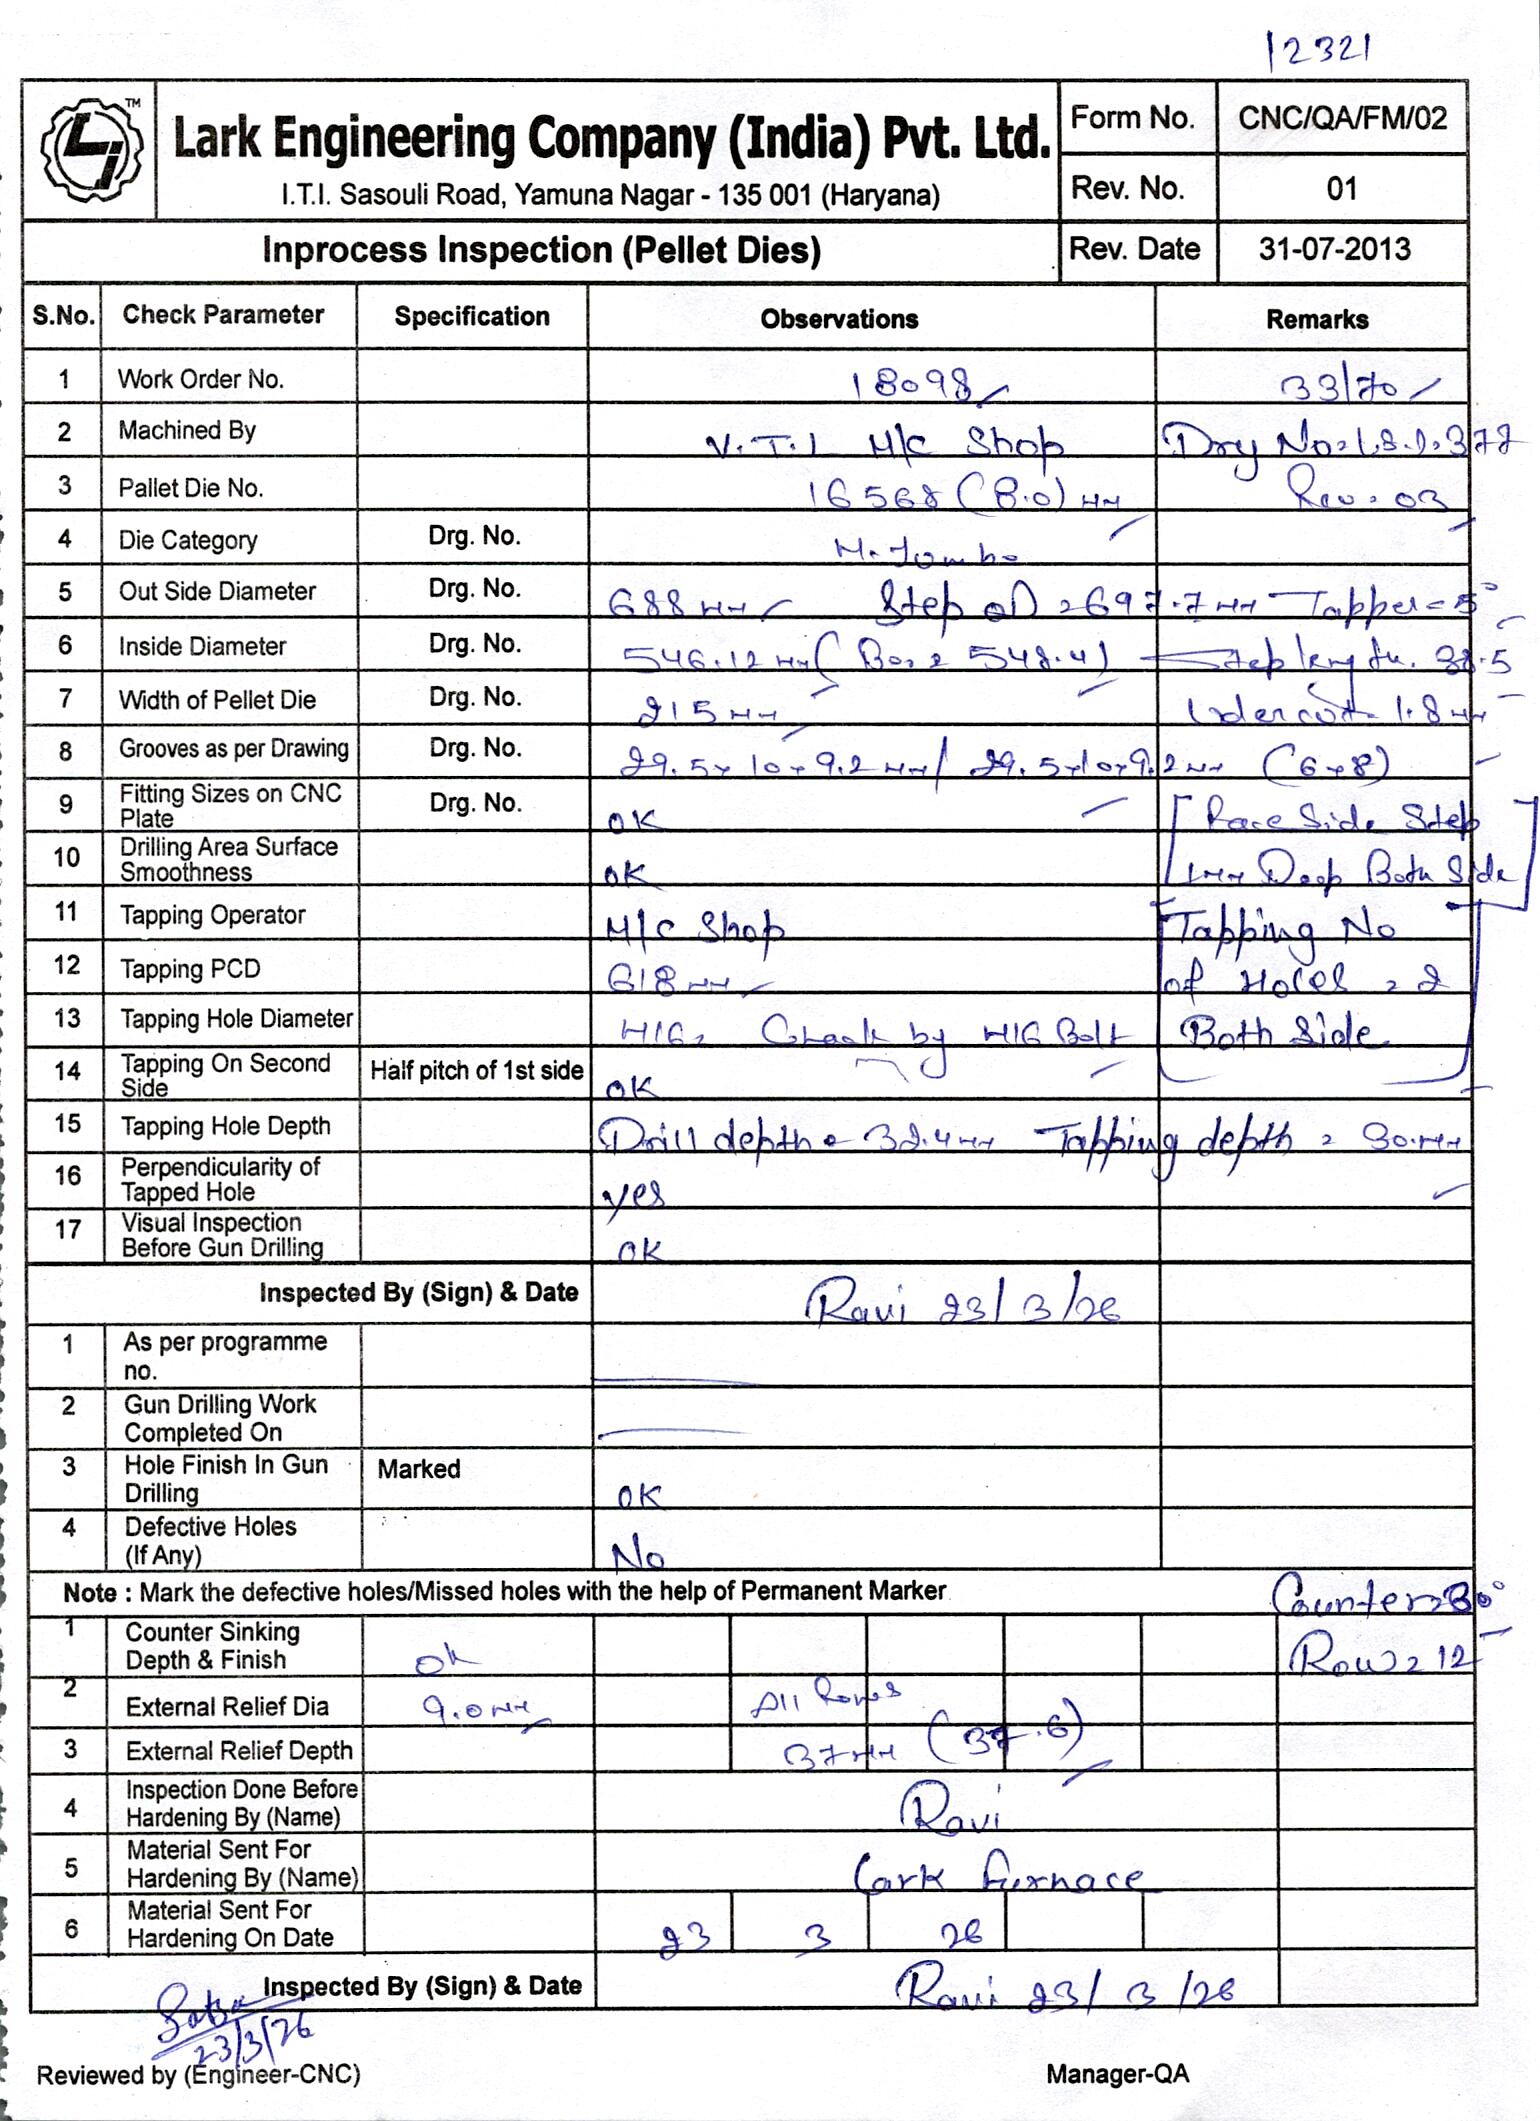 12321
TM
Lark Engineering Company (India) Pvt. Ltd.
I.T.I. Sasouli Road, Yamuna Nagar - 135 001 (Haryana)
Form No. CNC/QA/FM/02
Rev. No. 01
Inprocess Inspection (Pellet Dies) Rev. Date 31-07-2013
S.No. Check Parameter Specification Observations Remarks
1 Work Order No. 18098 33/70
2 Machined By M/c Shop
3 Pallet Die No. 16568 (8.0) mm Rev. 03
4 Die Category Drg. No. M. Jombo
5 Out Side Diameter Drg. No. 688 mm Step OD = 697.7 mm Tapper = 5°
6 Inside Diameter Drg. No. 546.12 mm 548.4) Step length. 38.5
7 Width of Pellet Die Drg. No. 215 mm Undercut 1.8 mm
8 Grooves as per Drawing Drg. No. 29.5x10x9.2 mm/ 29.5x10x9.2 mm (6x8)
9 Fitting Sizes on CNC Plate Drg. No. OK [ Side Step
10 Drilling Area Surface Smoothness OK 1mm Deep Both Side ]
11 Tapping Operator M/c Shop [Tapping No
12 Tapping PCD 618 mm of Holes = 2
13 Tapping Hole Diameter M16 = Chaak by M16 Bolt Both Side ]
14 Tapping On Second Side Half pitch of 1st side OK
15 Tapping Hole Depth Drill depth = 32.4mm Tapping depth = 30.mm
16 Perpendicularity of Tapped Hole yes
17 Visual Inspection Before Gun Drilling OK
Inspected By (Sign) & Date Ravi 23/3/26
1 As per programme no.
2 Gun Drilling Work Completed On
3 Hole Finish In Gun Drilling Marked OK
4 Defective Holes (If Any) No
Note : Mark the defective holes/Missed holes with the help of Permanent Marker Counter=30°
1 Counter Sinking Depth & Finish Ok Row = 12
2 External Relief Dia 9.0 mm All Rows
3 External Relief Depth 37mm (37.6)
4 Inspection Done Before Hardening By (Name) Ravi
5 Material Sent For Hardening By (Name) Lark Furnace
6 Material Sent For Hardening On Date 23 3 26
Inspected By (Sign) & Date Ravi 23/3/26
23/3/26
Reviewed by (Engineer-CNC) Manager-QA